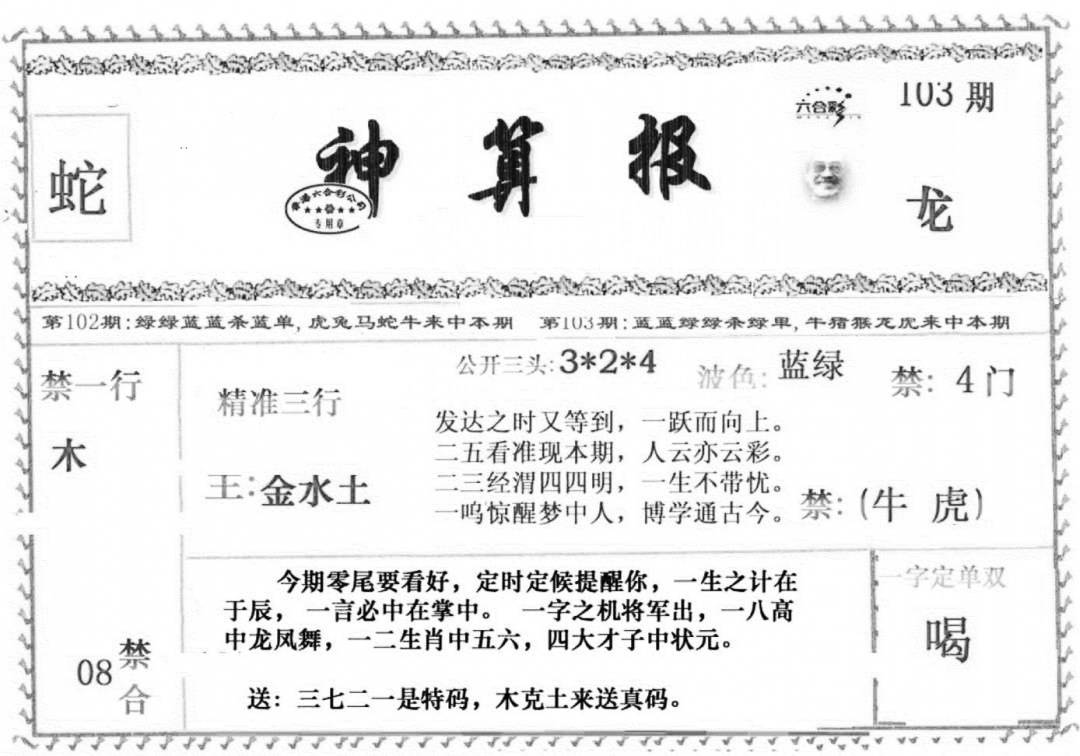 蛇
神算报
香港六合彩公司
★★★★★
专用章
六合彩
103期
龙
第102期:绿绿蓝蓝杀蓝单,虎兔马蛇牛来中本期
第103期:蓝蓝绿绿杀绿单,牛猪猴龙虎来中本期
禁一行
木
精准三行
王:金水土
公开三头:3*2*4
波色:蓝绿
禁:4门
发达之时又等到，一跃而向上。
二五看准现本期，人云亦云彩。
二三经渭四四明，一生不带忧。
一鸣惊醒梦中人，博学通古今。
禁:(牛 虎)
08禁合
今期零尾要看好，定时定候提醒你，一生之计在
于辰，一言必中在掌中。 一字之机将军出，一八高
中龙凤舞，一二生肖中五六，四大才子中状元。
送：三七二一是特码，木克土来送真码。
一字定单双
喝